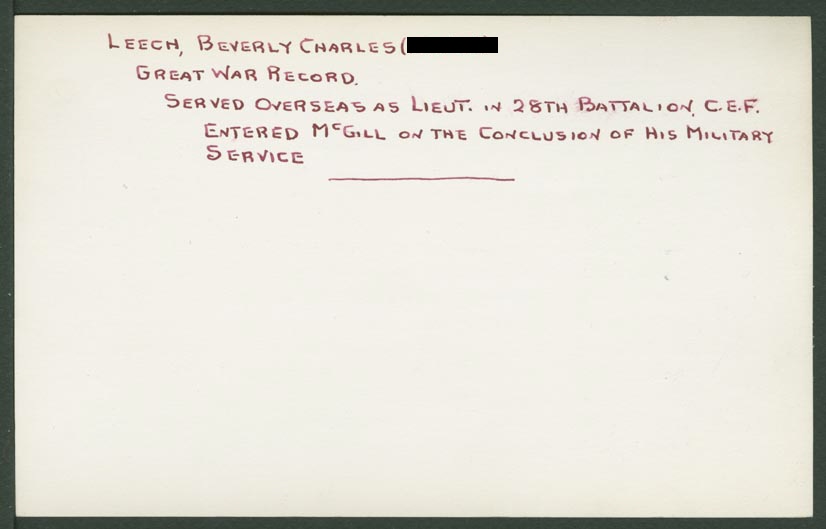 LEECH, BEVERLY CHARLES (
GREAT WAR RECORD.
SERVED OVERSEAS AS LIEUT. IN 28TH BATTALION, C.E.F.
ENTERED McGILL ON THE CONCLUSION OF HIS MILITARY
SERVICE